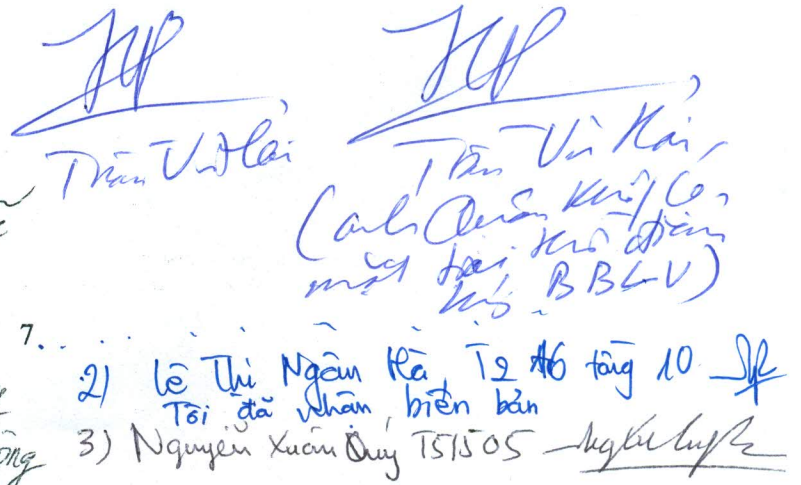 Trần Vũ Hải
Trần Vũ Hải,
(anh Quân không có
mặt tại thời điểm
ký BBLV)
7.
2) Lê Thị Ngân Hà, T2 A6 tầng 10
Tôi đã nhận biên bản
3) Nguyễn Xuân Quy T51505